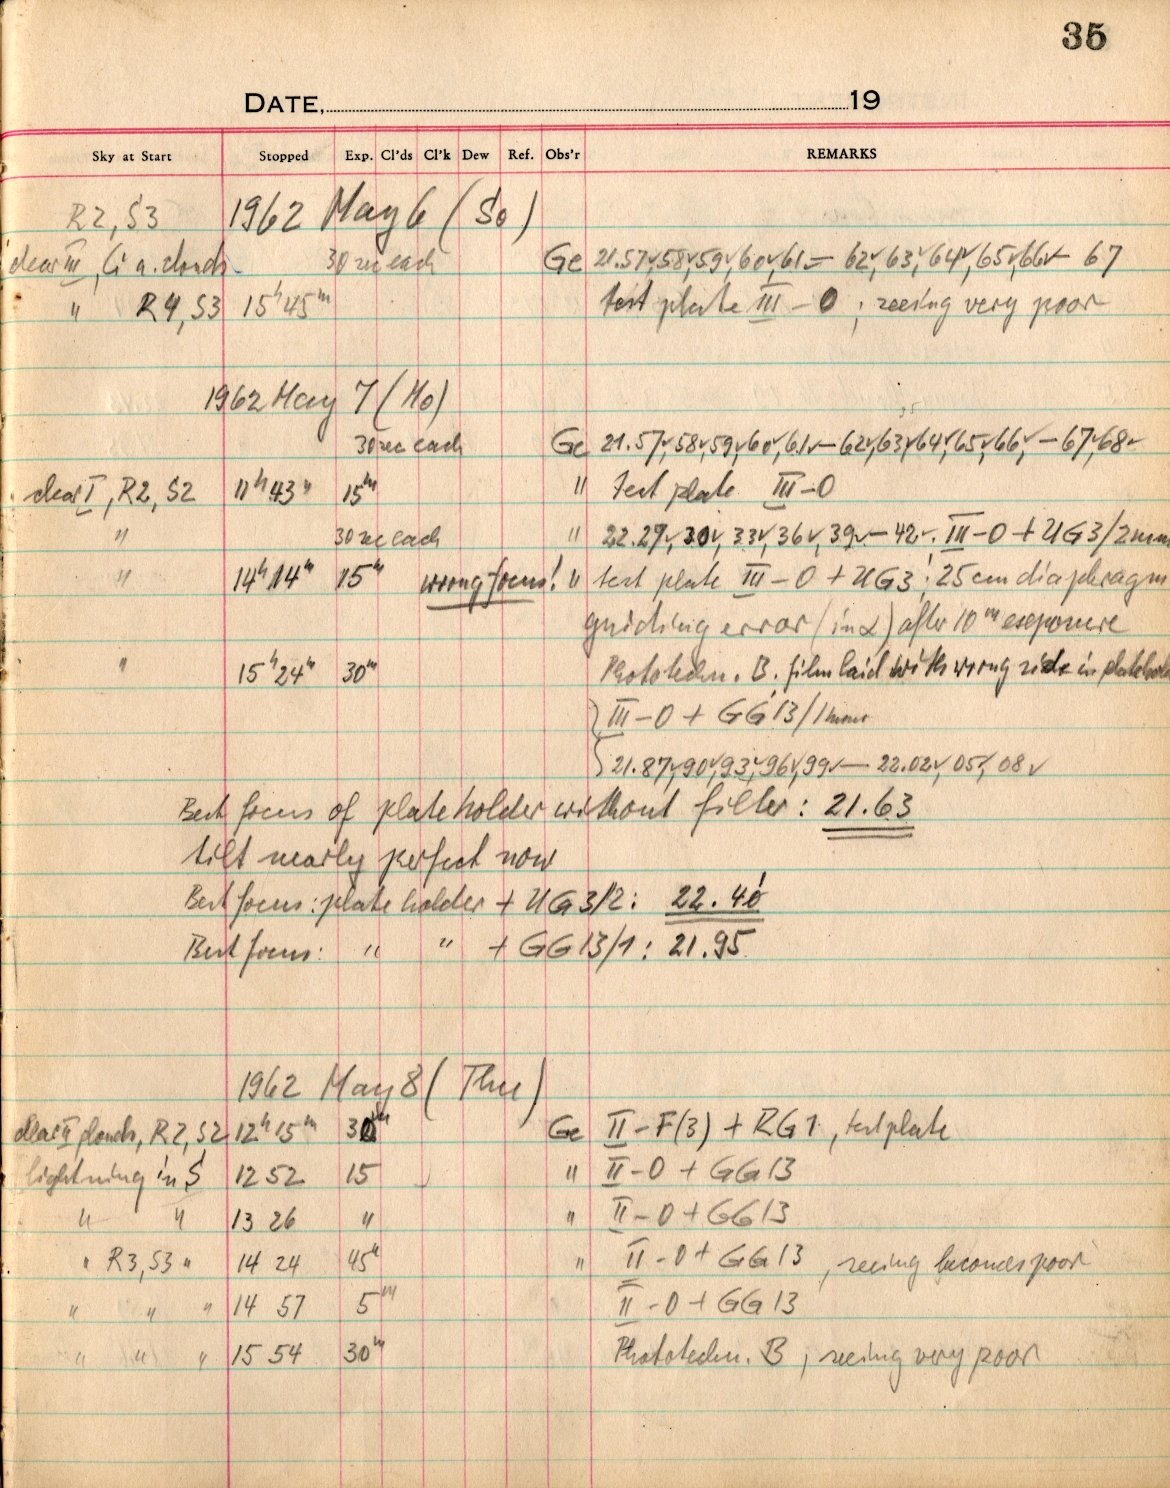 35
DATE, 19
Sky at Start Stopped Exp. Cl'ds Cl'k Dew Ref. Obs'r REMARKS
R2, S3 1962 May 6 (So)
clear III, Ci a. clouds 30 sec each Ge 21.57, 58, 59, 60, 61 — 62, 63, 64, 65, 66 — 67
" R4, S3 15h 45m test plate III-O ; seeing very poor
1962 May 7 (Mo)
30 sec each Ge 21.57, 58, 59, 60, 61 — 62, 63, 64, 65, 66, — 67, 68
clear I, R2, S2 11h 43m 15m " test plate III-O
" 30 sec each " 22.27, 30, 33, 36, 39 — 42. III-O + UG3/2mm
" 14h 14m 15m wrong focus! " test plate III-O + UG3; 25 cm diaphragm
guiding error (in α) after 10m exposure
" 15h 24m 30m Phototechn. B. film laid with wrong side in platehold
III-O + GG13/1mm
21.87, 90, 93, 96, 99 — 22.02, 05, 08
Best focus of plateholder without filter: 21.63
tilt nearly perfect now
Best focus: plate holder + UG3/2: 22.40
Best focus: " " + GG13/1: 21.95
1962 May 8 (Thu)
clear II clouds, R2, S2 12h 15m 30m Ge II-F(3) + RG1, testplate
lightning in S 12 52 15 " II-O + GG13
" " 13 26 " " II-O + GG13
" R3, S3 " 14 24 45m " II-O + GG13, seeing becomes poor
" " " 14 57 5m II-O + GG13
" " " 15 54 30m Phototechn. B ; seeing very poor